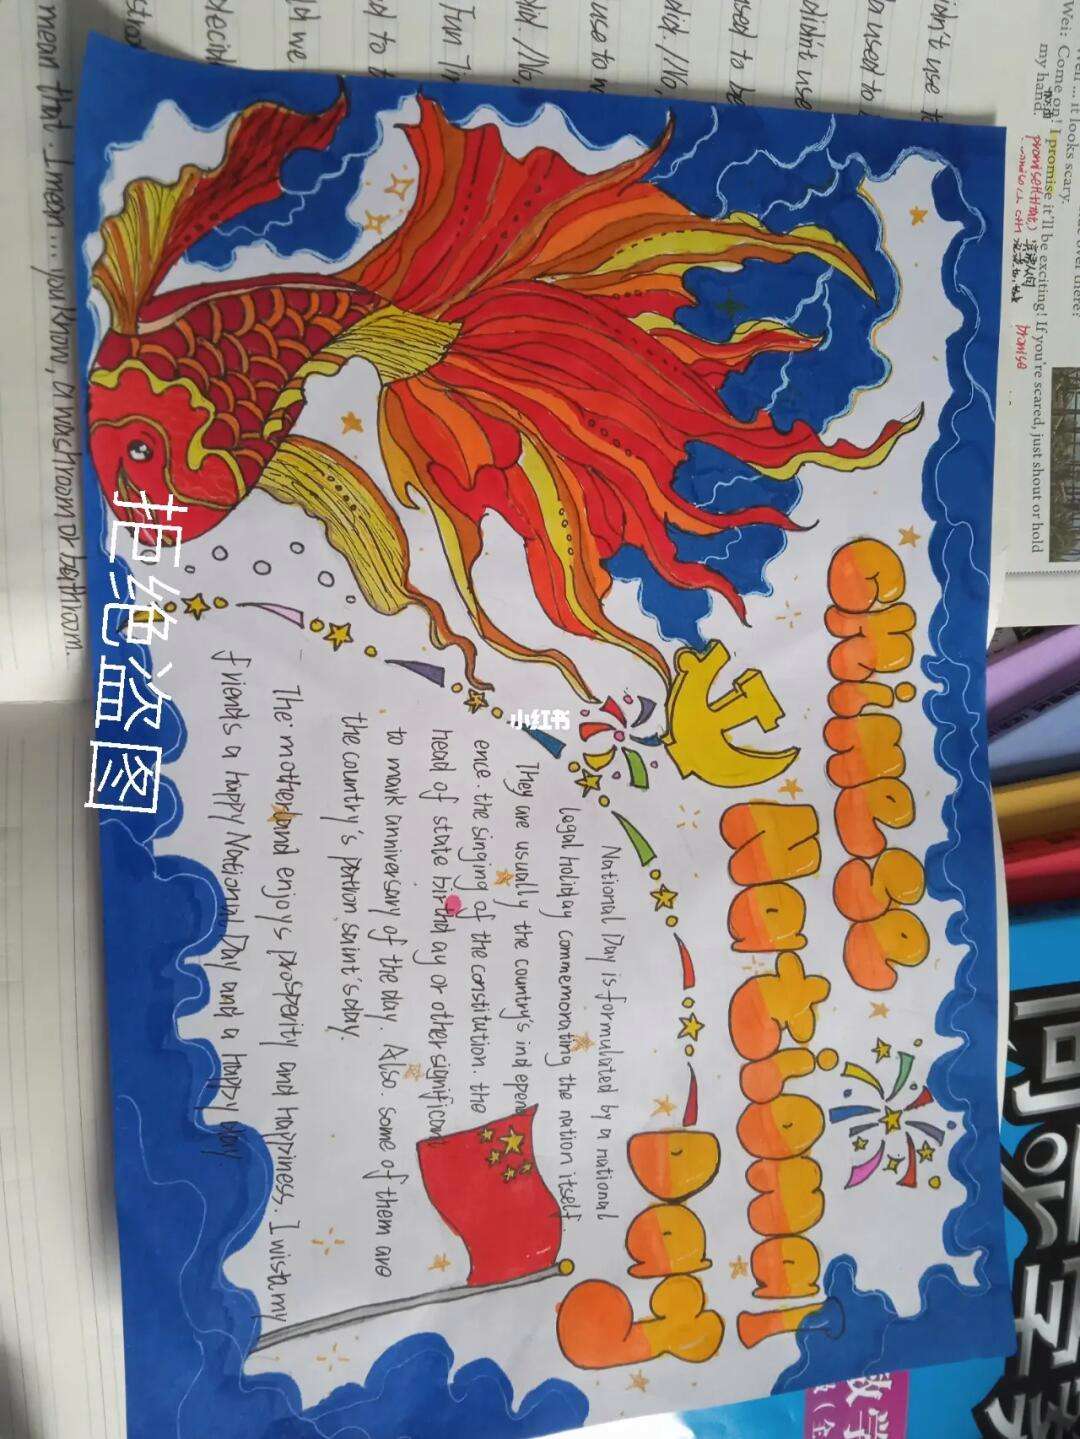 Chinese
National
Day
National Day is formulated by a national
legal holiday commemorating the nation itself
They are usually the country's indepen
ence. the singing of the constitution. the
head of state birthday or other significan
to mark anniversary of the day. Also. some of them are
the country's patron saint's day.
The motherland enjoys prosperity and happiness. I wish my
friends a happy National Day and a happy day.
拒绝盗图
小红书
mean that. I mean... you know, a washroom or bathroom.
didn't use
used to be
Wei: Come on! I promise it'll be exciting! If you're scared, just shout or hold
my hand.
it looks scary.
promise